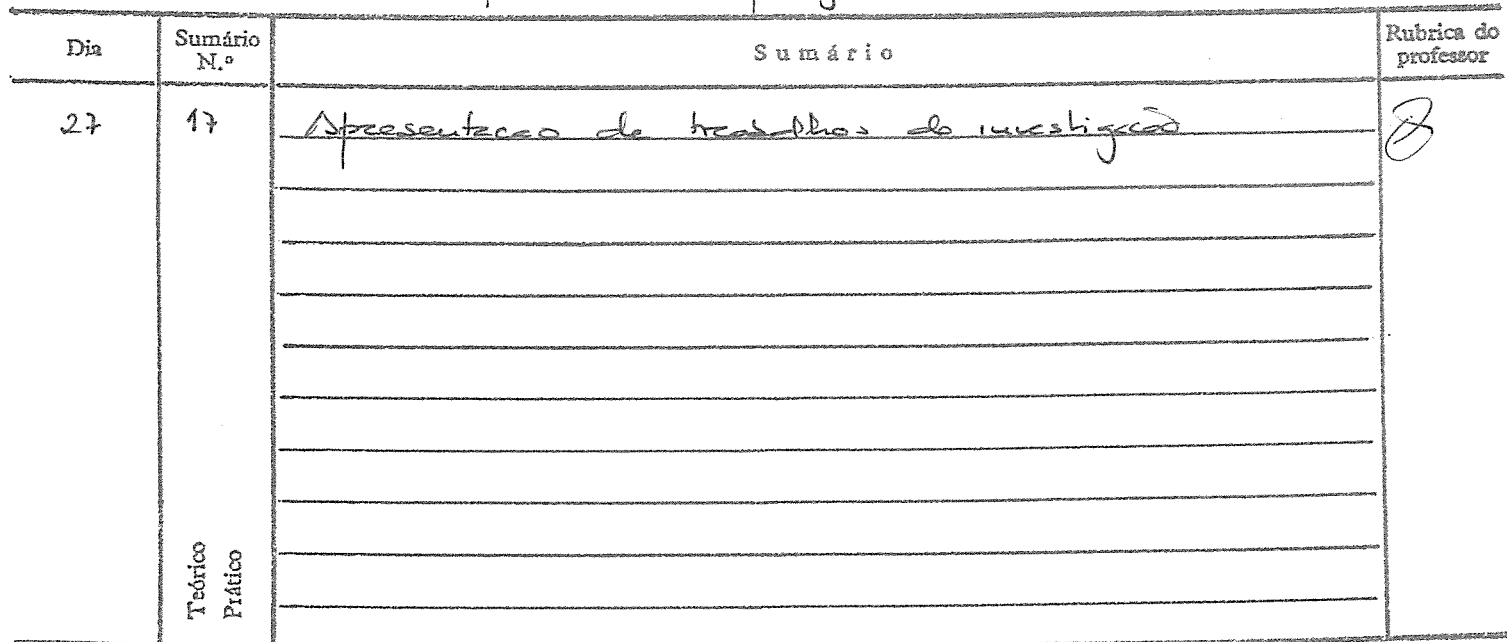 Dia
Sumário
N.º
Sumário
Rubrica do
professor
27
17
Apresentacao de trabalhos de investigação
Teórico
Prático